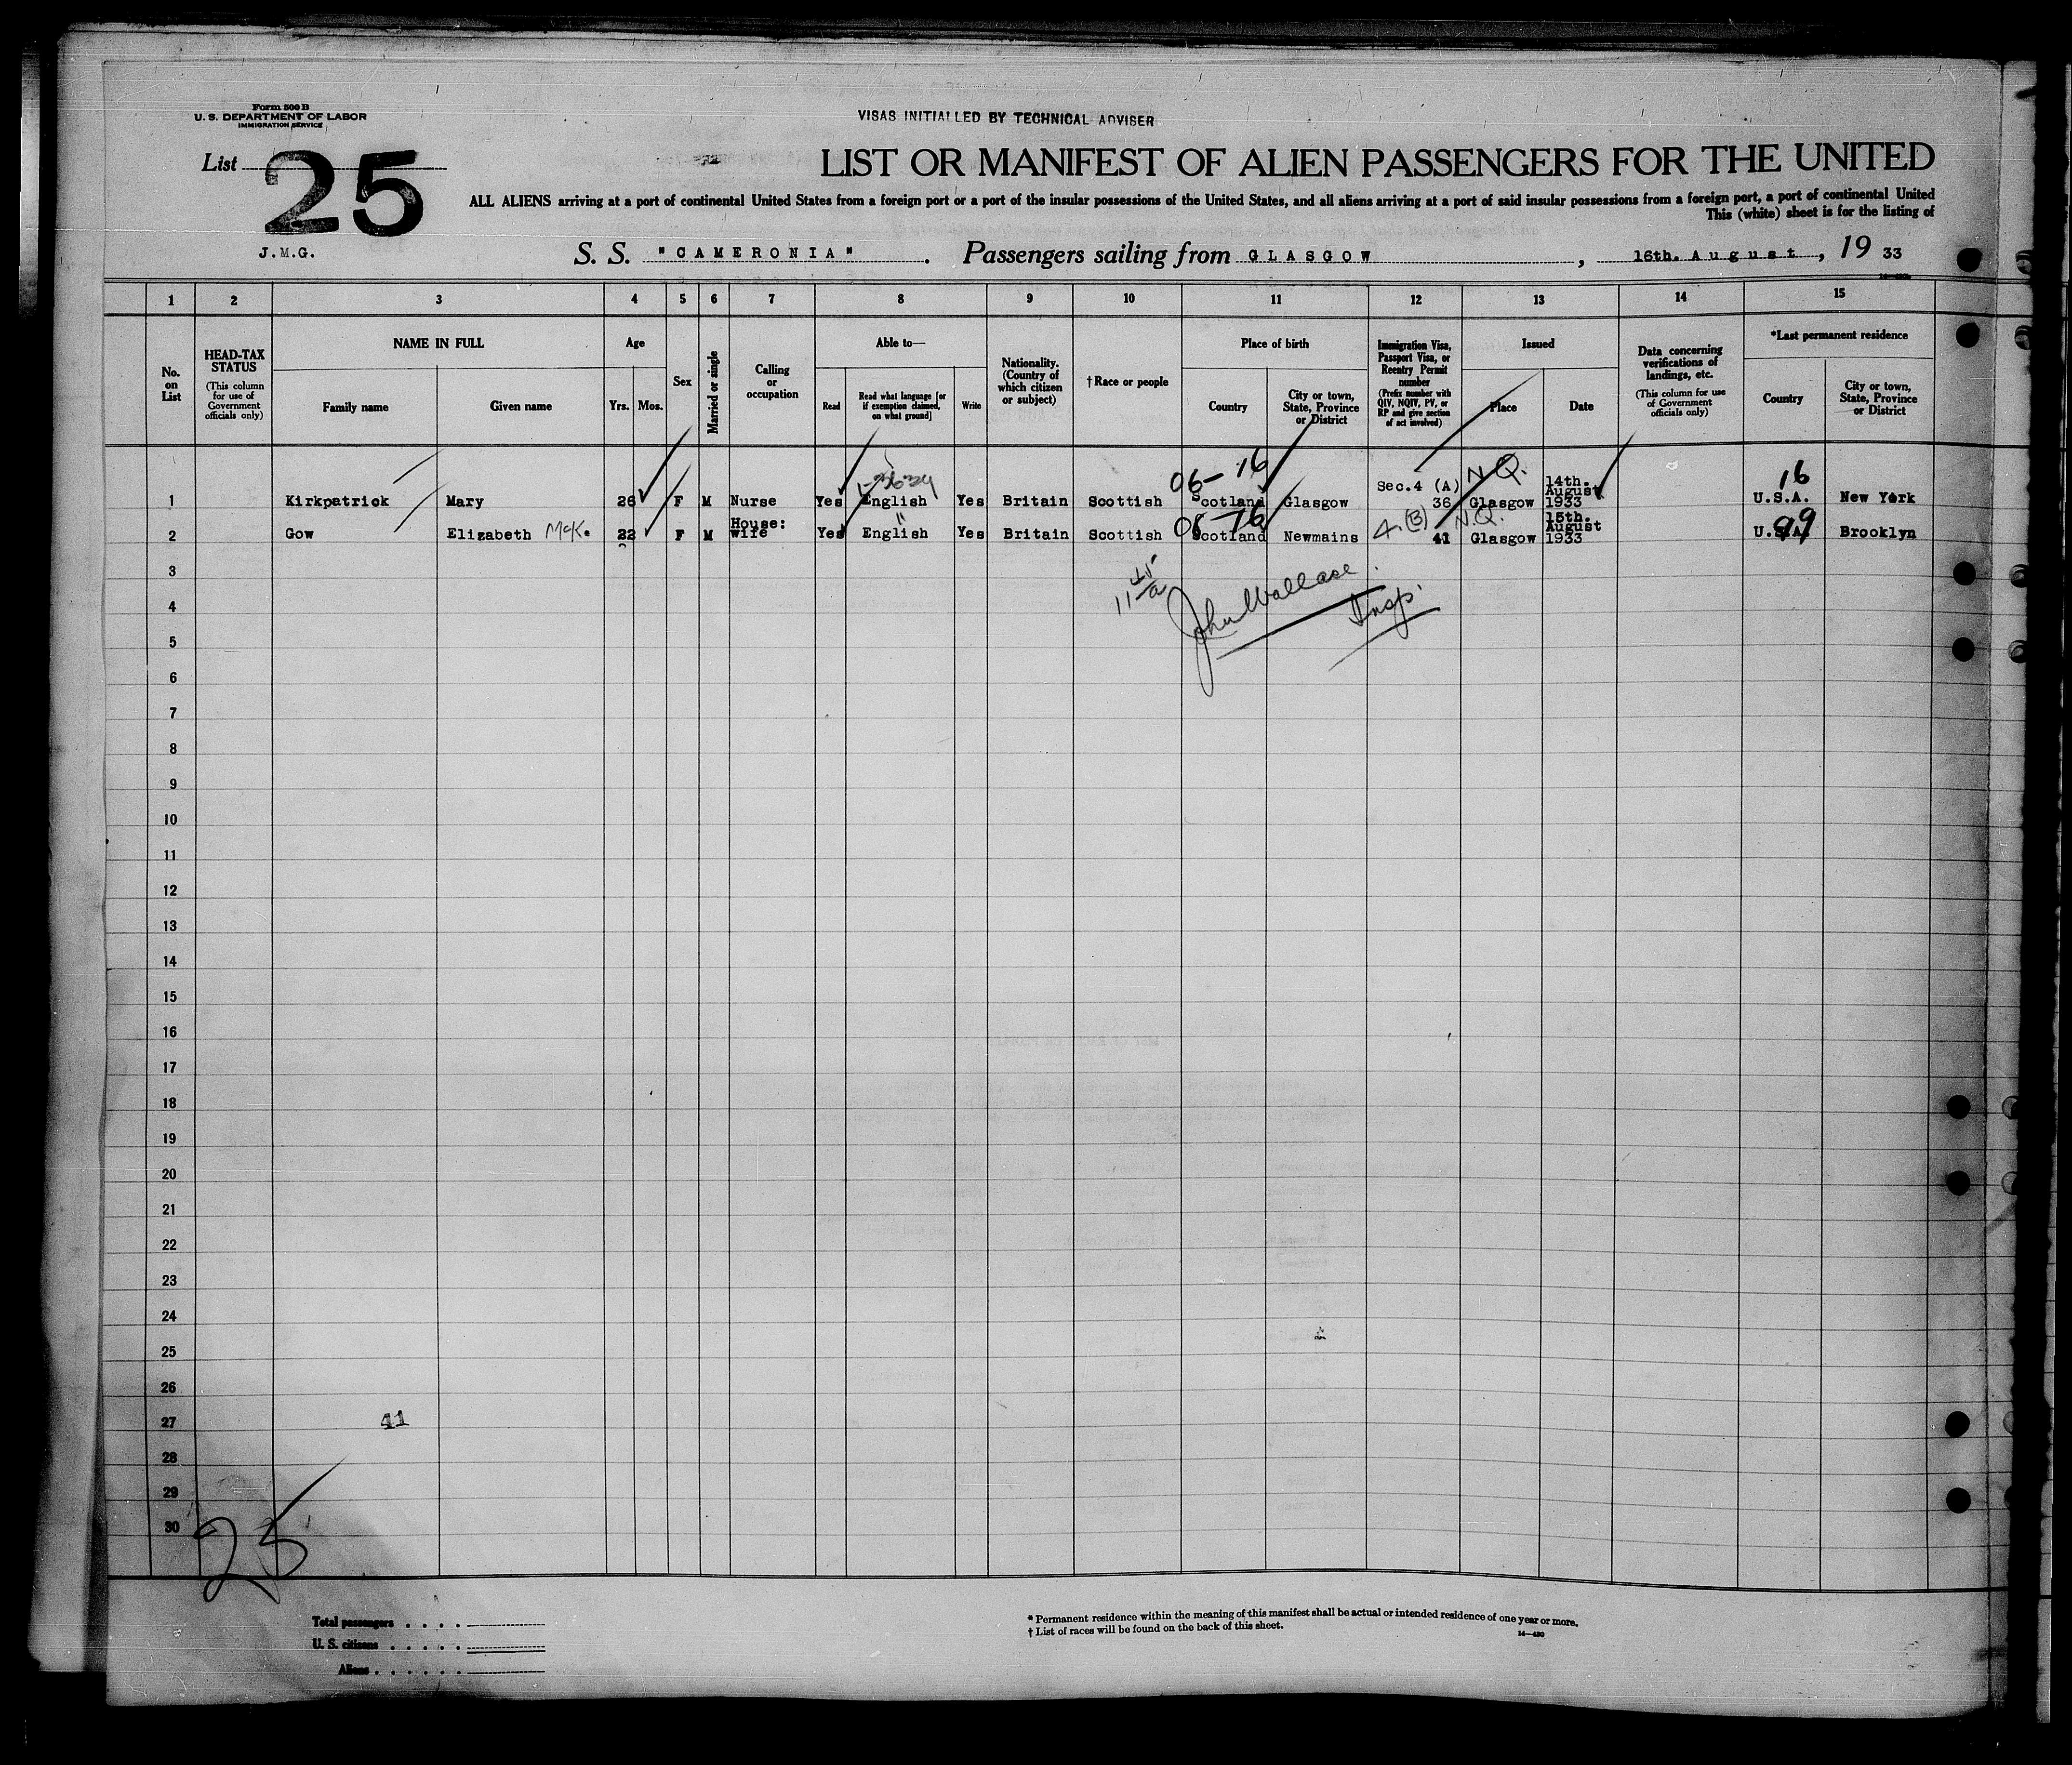 Form 500 B
U. S. DEPARTMENT OF LABOR
IMMIGRATION SERVICE
VISAS INITIALLED BY TECHNICAL ADVISER
List 25
LIST OR MANIFEST OF ALIEN PASSENGERS FOR THE UNITED
ALL ALIENS arriving at a port of continental United States from a foreign port or a port of the insular possessions of the United States, and all aliens arriving at a port of said insular possessions from a foreign port, a port of continental United
This (white) sheet is for the listing of
J.M.G.
S. S. "CAMERONIA". Passengers sailing from GLASGOW, 16th. August, 19 33
1 2 3 4 5 6 7 8 9 10 11 12 13 14 15
No. on List
HEAD-TAX STATUS (This column for use of Government officials only)
NAME IN FULL
Family name
Given name
Age
Yrs.
Mos.
Sex
Married or single
Calling or occupation
Able to—
Read
Read what language [or if exemption claimed, on what ground]
Write
Nationality. (Country of which citizen or subject)
† Race or people
Place of birth
Country
City or town, State, Province or District
Immigration Visa, Passport Visa, or Reentry Permit number (Prefix number with QIV, NQIV, PV, or RP and give section of act involved)
Issued
Place
Date
Data concerning verifications of landings, etc. (This column for use of Government officials only)
*Last permanent residence
Country
City or town, State, Province or District
06-16 N.Q. 16
1 Kirkpatrick Mary 26 F M Nurse Yes English Yes Britain Scottish Scotland Glasgow Sec.4 (A) 36 Glasgow 14th. August 1933 U.S.A. New York
06-16 4.(B) N.Q. 99
2 Gow Elizabeth McK. 22 F M House: wife Yes English " Yes Britain Scottish Scotland Newmains 41 Glasgow 15th. August 1933 U.S.A. Brooklyn
3
11 45/a John Wallace
4
Insp.
5
6
7
8
9
10
11
12
13
14
15
16
17
18
19
20
21
22
23
24
25
26
27 41
28
29
30
25
Total passengers
U. S. citizens
Aliens
* Permanent residence within the meaning of this manifest shall be actual or intended residence of one year or more.
† List of races will be found on the back of this sheet.
14—430